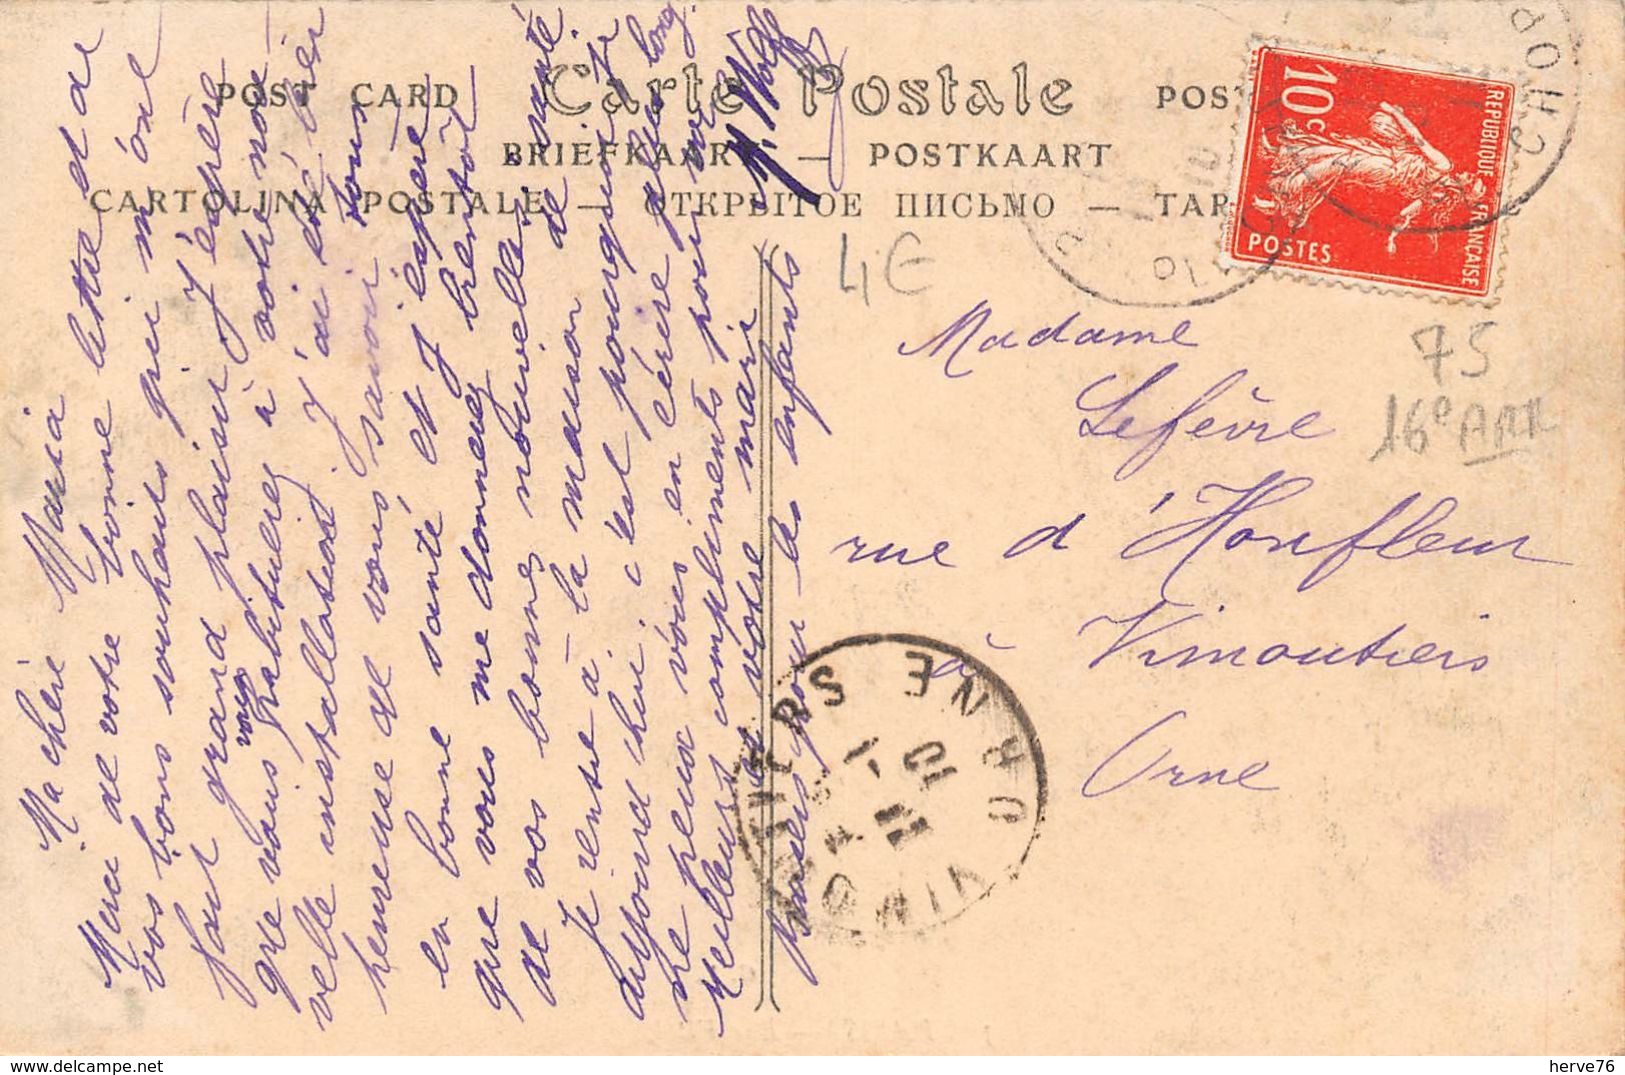 Ma chère Maria
Merci de votre bonne lettre et de
vos bons souhaits qui m'ont
fait grand plaisir J'éspère
que vous vous habituerez à votre nou
velle installation J'ai été bien
heureuse de vous savoir tous
en bonne santé et J'espère
que vous me donnerez bientôt
de vos bonnes nouvelles. santé
Je rentre à la maison de
aujourd'hui. c'est pourquoi Je
ne peux vous en écrire plus long.
Meilleurs compliments pour vous
et votre mari
baisers pour les enfants
Y. Wolff
POST CARD Carte Postale POST
BRIEFKAART — POSTKAART
CARTOLINA POSTALE — ОТКРЫТОЕ ПИСЬМО — TAR
REPUBLIQUE FRANÇAISE
10c
POSTES
4€
75
16e ARR
Madame
Lefèvre
rue d'Honfleur
à Vimoutiers
Orne
VIMOUTIERS ORNE
10
11
hervé76